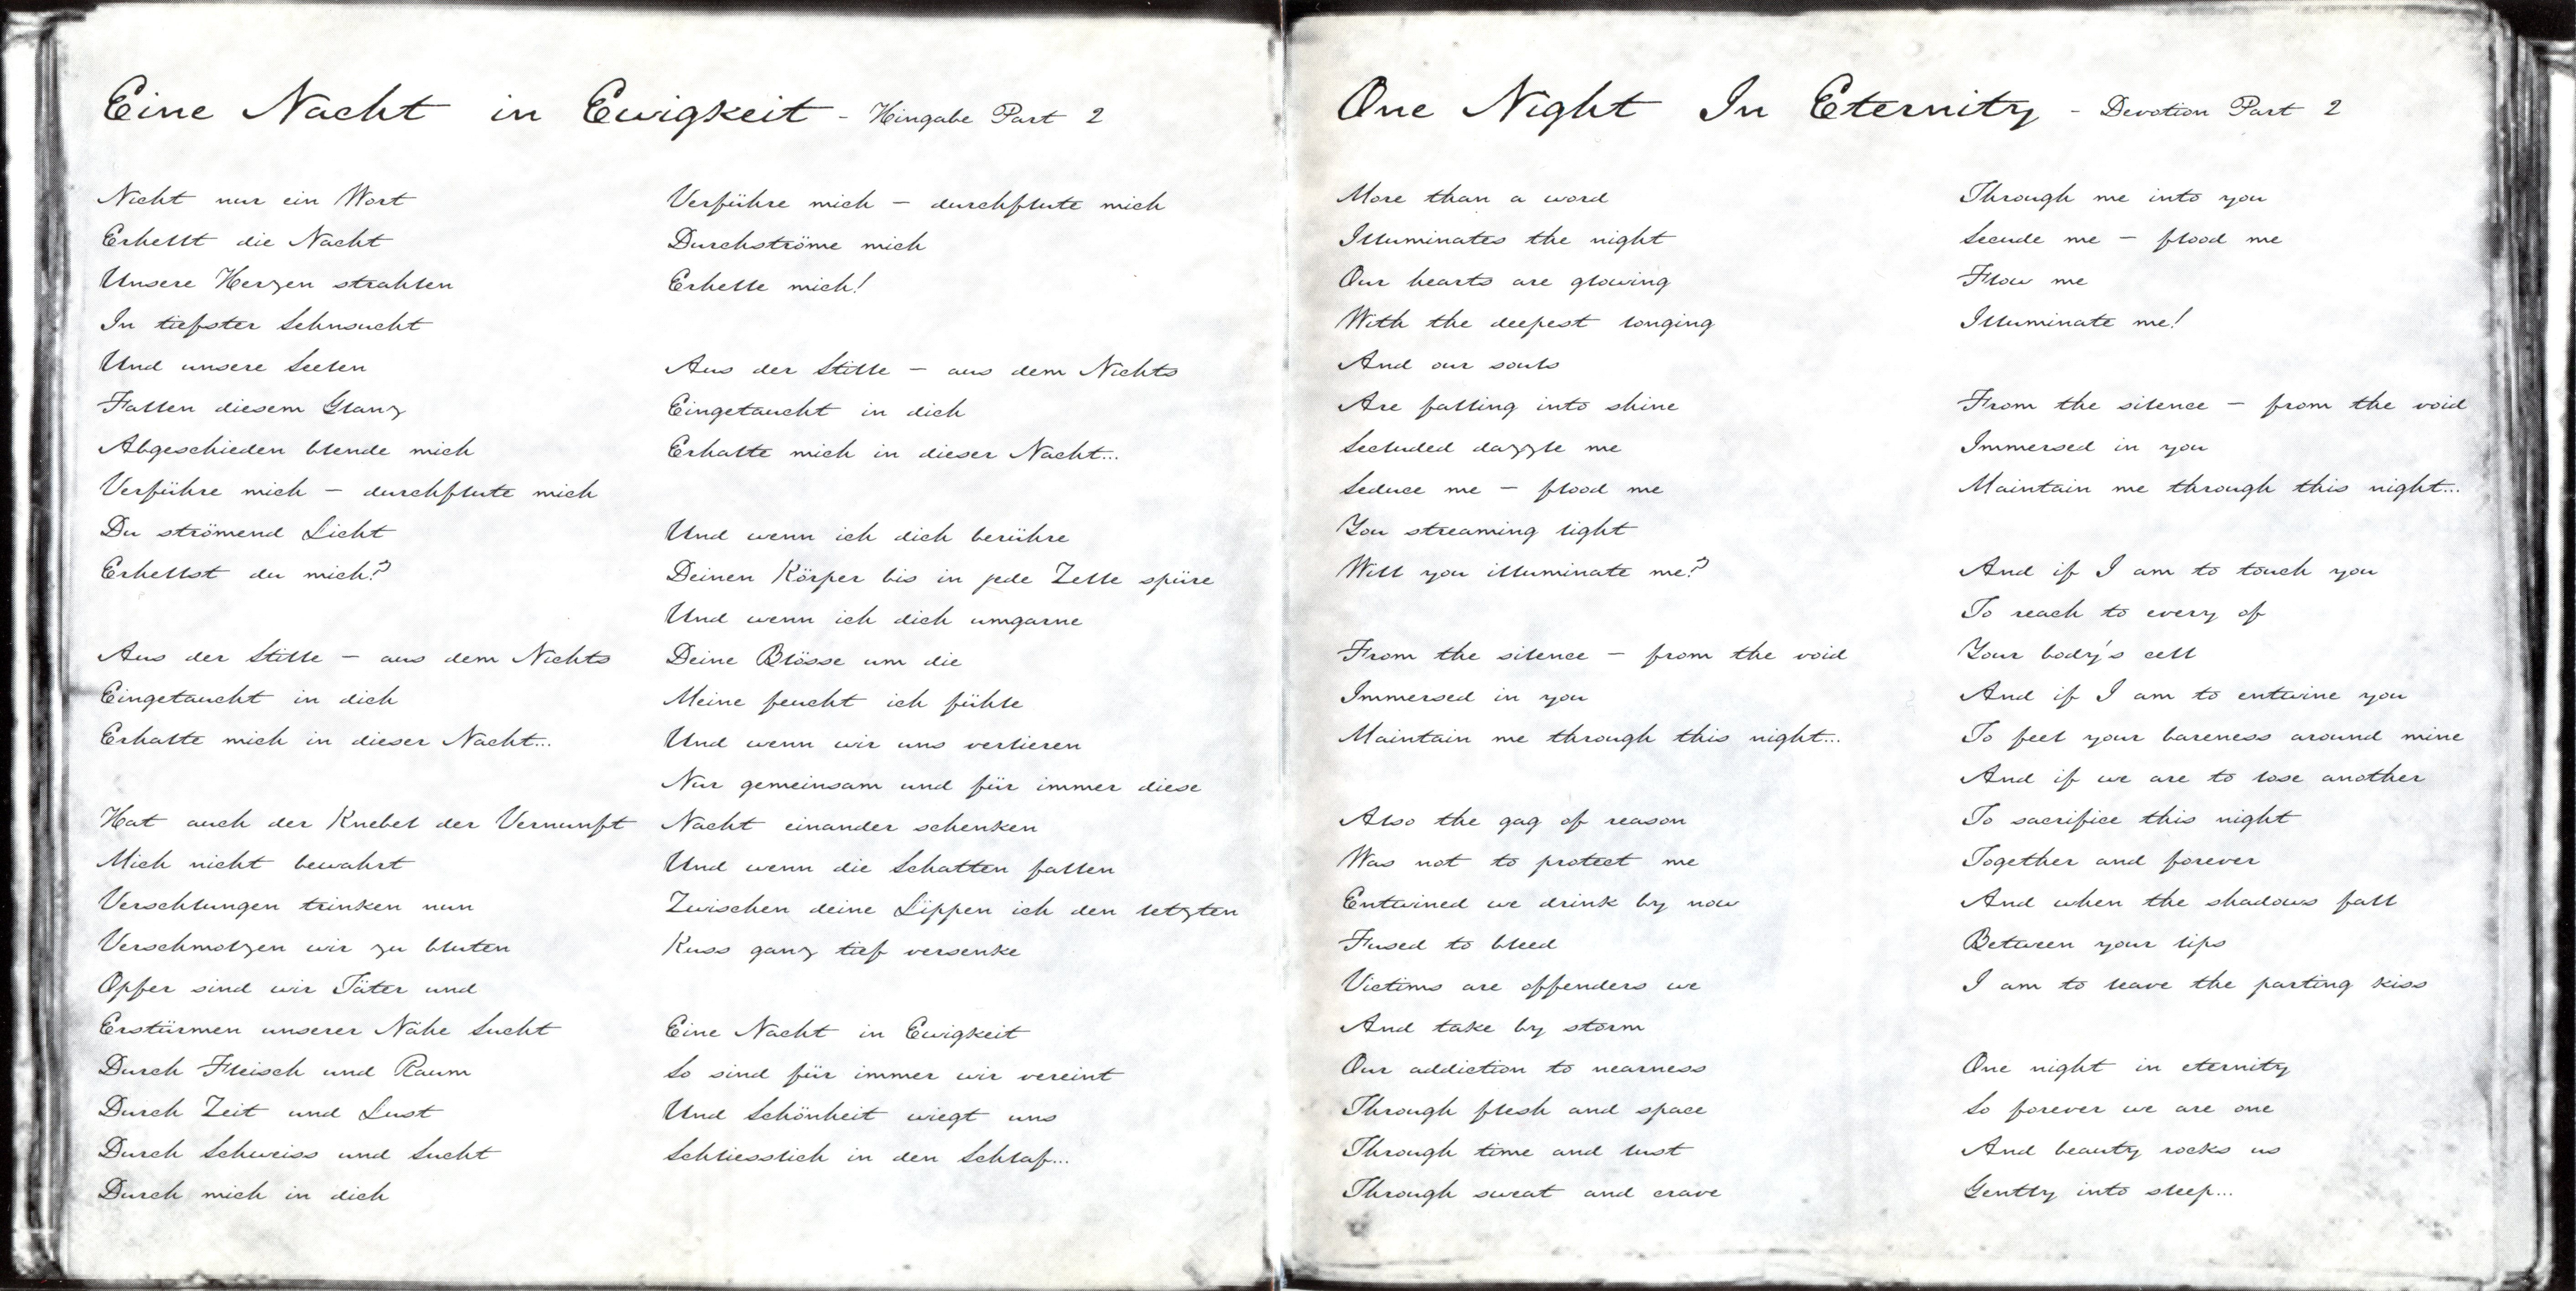 Eine Nacht in Ewigkeit - Hingabe Part 2
Nicht nur ein Wort
Erhellt die Nacht
Unsere Herzen strahlen
In tiefster Sehnsucht
Und unsere Seelen
Fallen diesem Glanz
Abgeschieden blende mich
Verführe mich - durchflute mich
Du strömend Licht
Erhellst du mich?
Aus der Stille - aus dem Nichts
Eingetaucht in dich
Erhalte mich in dieser Nacht...
Hat auch der Knebel der Vernunft
Mich nicht bewahrt
Verschlungen trinken nun
Verschmolzen wir zu bluten
Opfer sind wir Täter und
Erstürmen unserer Nähe Sucht
Durch Fleisch und Raum
Durch Zeit und Lust
Durch Schweiss und Sucht
Durch mich in dich
Verführe mich - durchflute mich
Durchströme mich
Erhelle mich!
Aus der Stille - aus dem Nichts
Eingetaucht in dich
Erhalte mich in dieser Nacht...
Und wenn ich dich berühre
Deinen Körper bis in jede Zelle spüre
Und wenn ich dich umgarne
Deine Blösse um die
Meine feucht ich fühle
Und wenn wir uns verlieren
Nur gemeinsam und für immer diese
Nacht einander schenken
Und wenn die Schatten fallen
Zwischen deine Lippen ich den letzten
Kuss ganz tief versenke
Eine Nacht in Ewigkeit
So sind für immer wir vereint
Und Schönheit wiegt uns
Schliesslich in den Schlaf...
One Night In Eternity - Devotion Part 2
More than a word
Illuminates the night
Our hearts are glowing
With the deepest longing
And our souls
Are falling into shine
Secluded dazzle me
Seduce me - flood me
You streaming light
Will you illuminate me?
From the silence - from the void
Immersed in you
Maintain me through this night...
Also the gag of reason
Was not to protect me
Entwined we drink by now
Fused to bleed
Victims are offenders we
And take by storm
Our addiction to nearness
Through flesh and space
Through time and lust
Through sweat and crave
Through me into you
Secude me - flood me
Flow me
Illuminate me!
From the silence - from the void
Immersed in you
Maintain me through this night...
And if I am to touch you
To reach to every of
Your body's cell
And if I am to entwine you
To feel your bareness around mine
And if we are to lose another
To sacrifice this night
Together and forever
And when the shadows fall
Between your lips
I am to leave the parting kiss
One night in eternity
So forever we are one
And beauty rocks us
Gently into sleep...